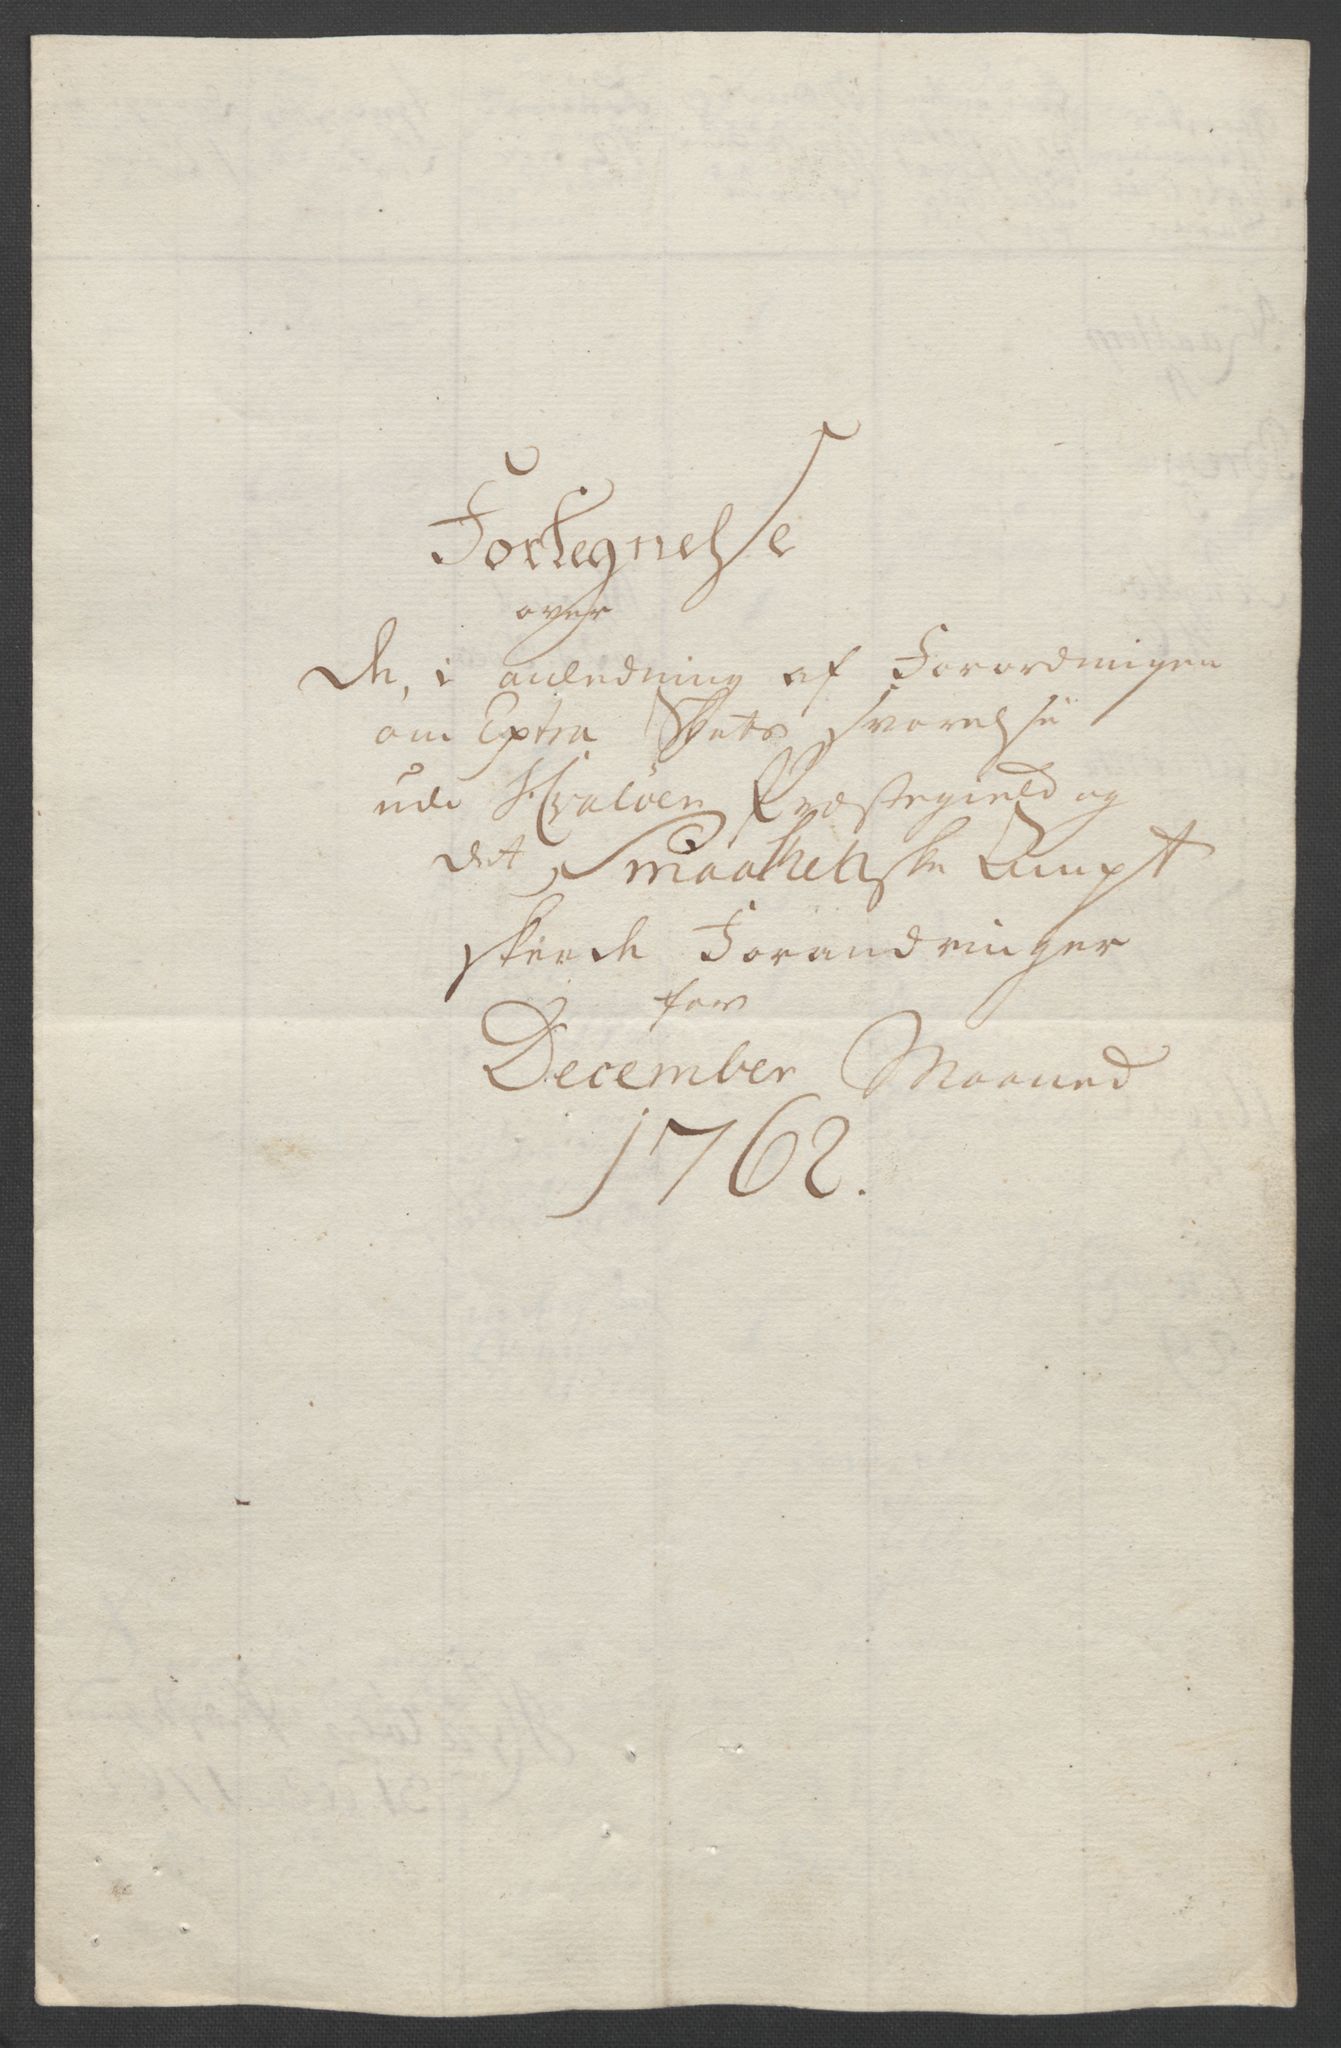 Fortegnelse
over
De, i anledning af Forordningen
om Extra Skatts svarelse
udi Hvaløer Præstegield og
det Smaalehnske Ampt
skeede Forandringer
for
December Maaned
1762.